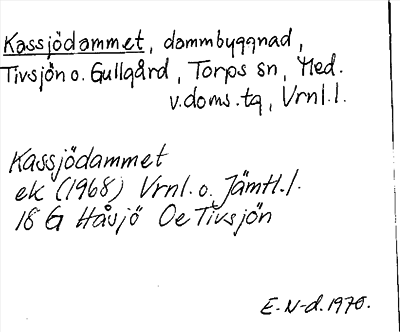 Kassjödammet, dammbyggnad,
Tivsjön o. Gullgård, Torps sn, Med.
v. doms. tg, Vrnl. l.
Kassjödammet
ek (1968) Vrnl. o. Jämtl. l.
18 G Håsjö Oe Tivsjön
E. N-d. 1970.